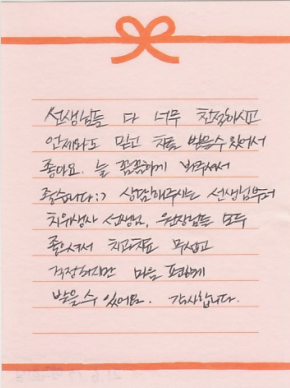 선생님들 다 너무 친절하시고
언제와도 믿고 치료 받을수 있어서
좋아요. 늘 꼼꼼하게 봐주셔서
좋습니다:) 상담해주시는 선생님부터
치위생사 선생님, 원장님들 모두
좋으셔서 치과치료 무섭고
걱정하지만 마음 편하게
받을수 있어요. 감사합니다.